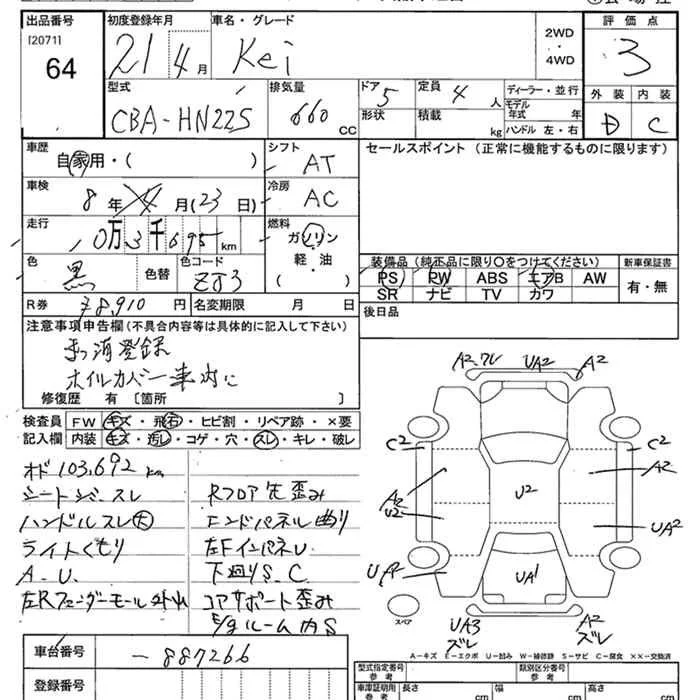 出品番号 初度登録年月 車名・グレード 2WD・4WD 評価点
[2071] 64 21 4月 Kei 3
型式 排気量 ドア 5 定員 4人 ディーラー・並行 外装 内装
CBA-HN22S 660 CC 形状 積載 kg モデル年式 年 D C
ハンドル 左・右
車歴 シフト セールスポイント (正常に機能するものに限ります)
自家用・( ) AT
車検 冷房
8年 4月(23日) AC
走行 燃料
10万3千695km ガソリン
軽・油
( )
色 黒 色替 色コード ZJ3
装備品 (純正品に限り○をつけてください) 新車保証書
PS PW ABS エアB AW 有・無
SR ナビ TV カワ
R券 ¥8,910円 名変期限 月 日 後日品
注意事項申告欄 (不具合内容等は具体的に記入して下さい)
まっ消登録
ホイルカバー車内に
修復歴 有 〔箇所 〕
検査員 FW キズ・飛石・ヒビ割・リペア跡・×要
記入欄 内装 キズ・汚し・コゲ・穴・スレ・キレ・破レ
オド103,692km
シートジャースレ Rフロア先歪み
ハンドルスレ大 エンドパネル曲り
ライトくもり 左FインパネU
A.U. 下廻りS.C
左Rフェンダーモール外れ コアサポート歪み
E/gルーム内S
A2.ワレ UA2 A2
C2 C2
A2 U2 U2 A2
UA2
UA2 UA1
スペア UA3 ズレ A2 ズレ
A-キズ E-エクボ U-凹み W-補修跡 S-サビ C-腐食 XX-交換済
車台番号 -887266
登録番号
型式指定番号 参考 類別区分番号 参考
車庫証明用 参考 長さ cm 幅 cm 高さ cm